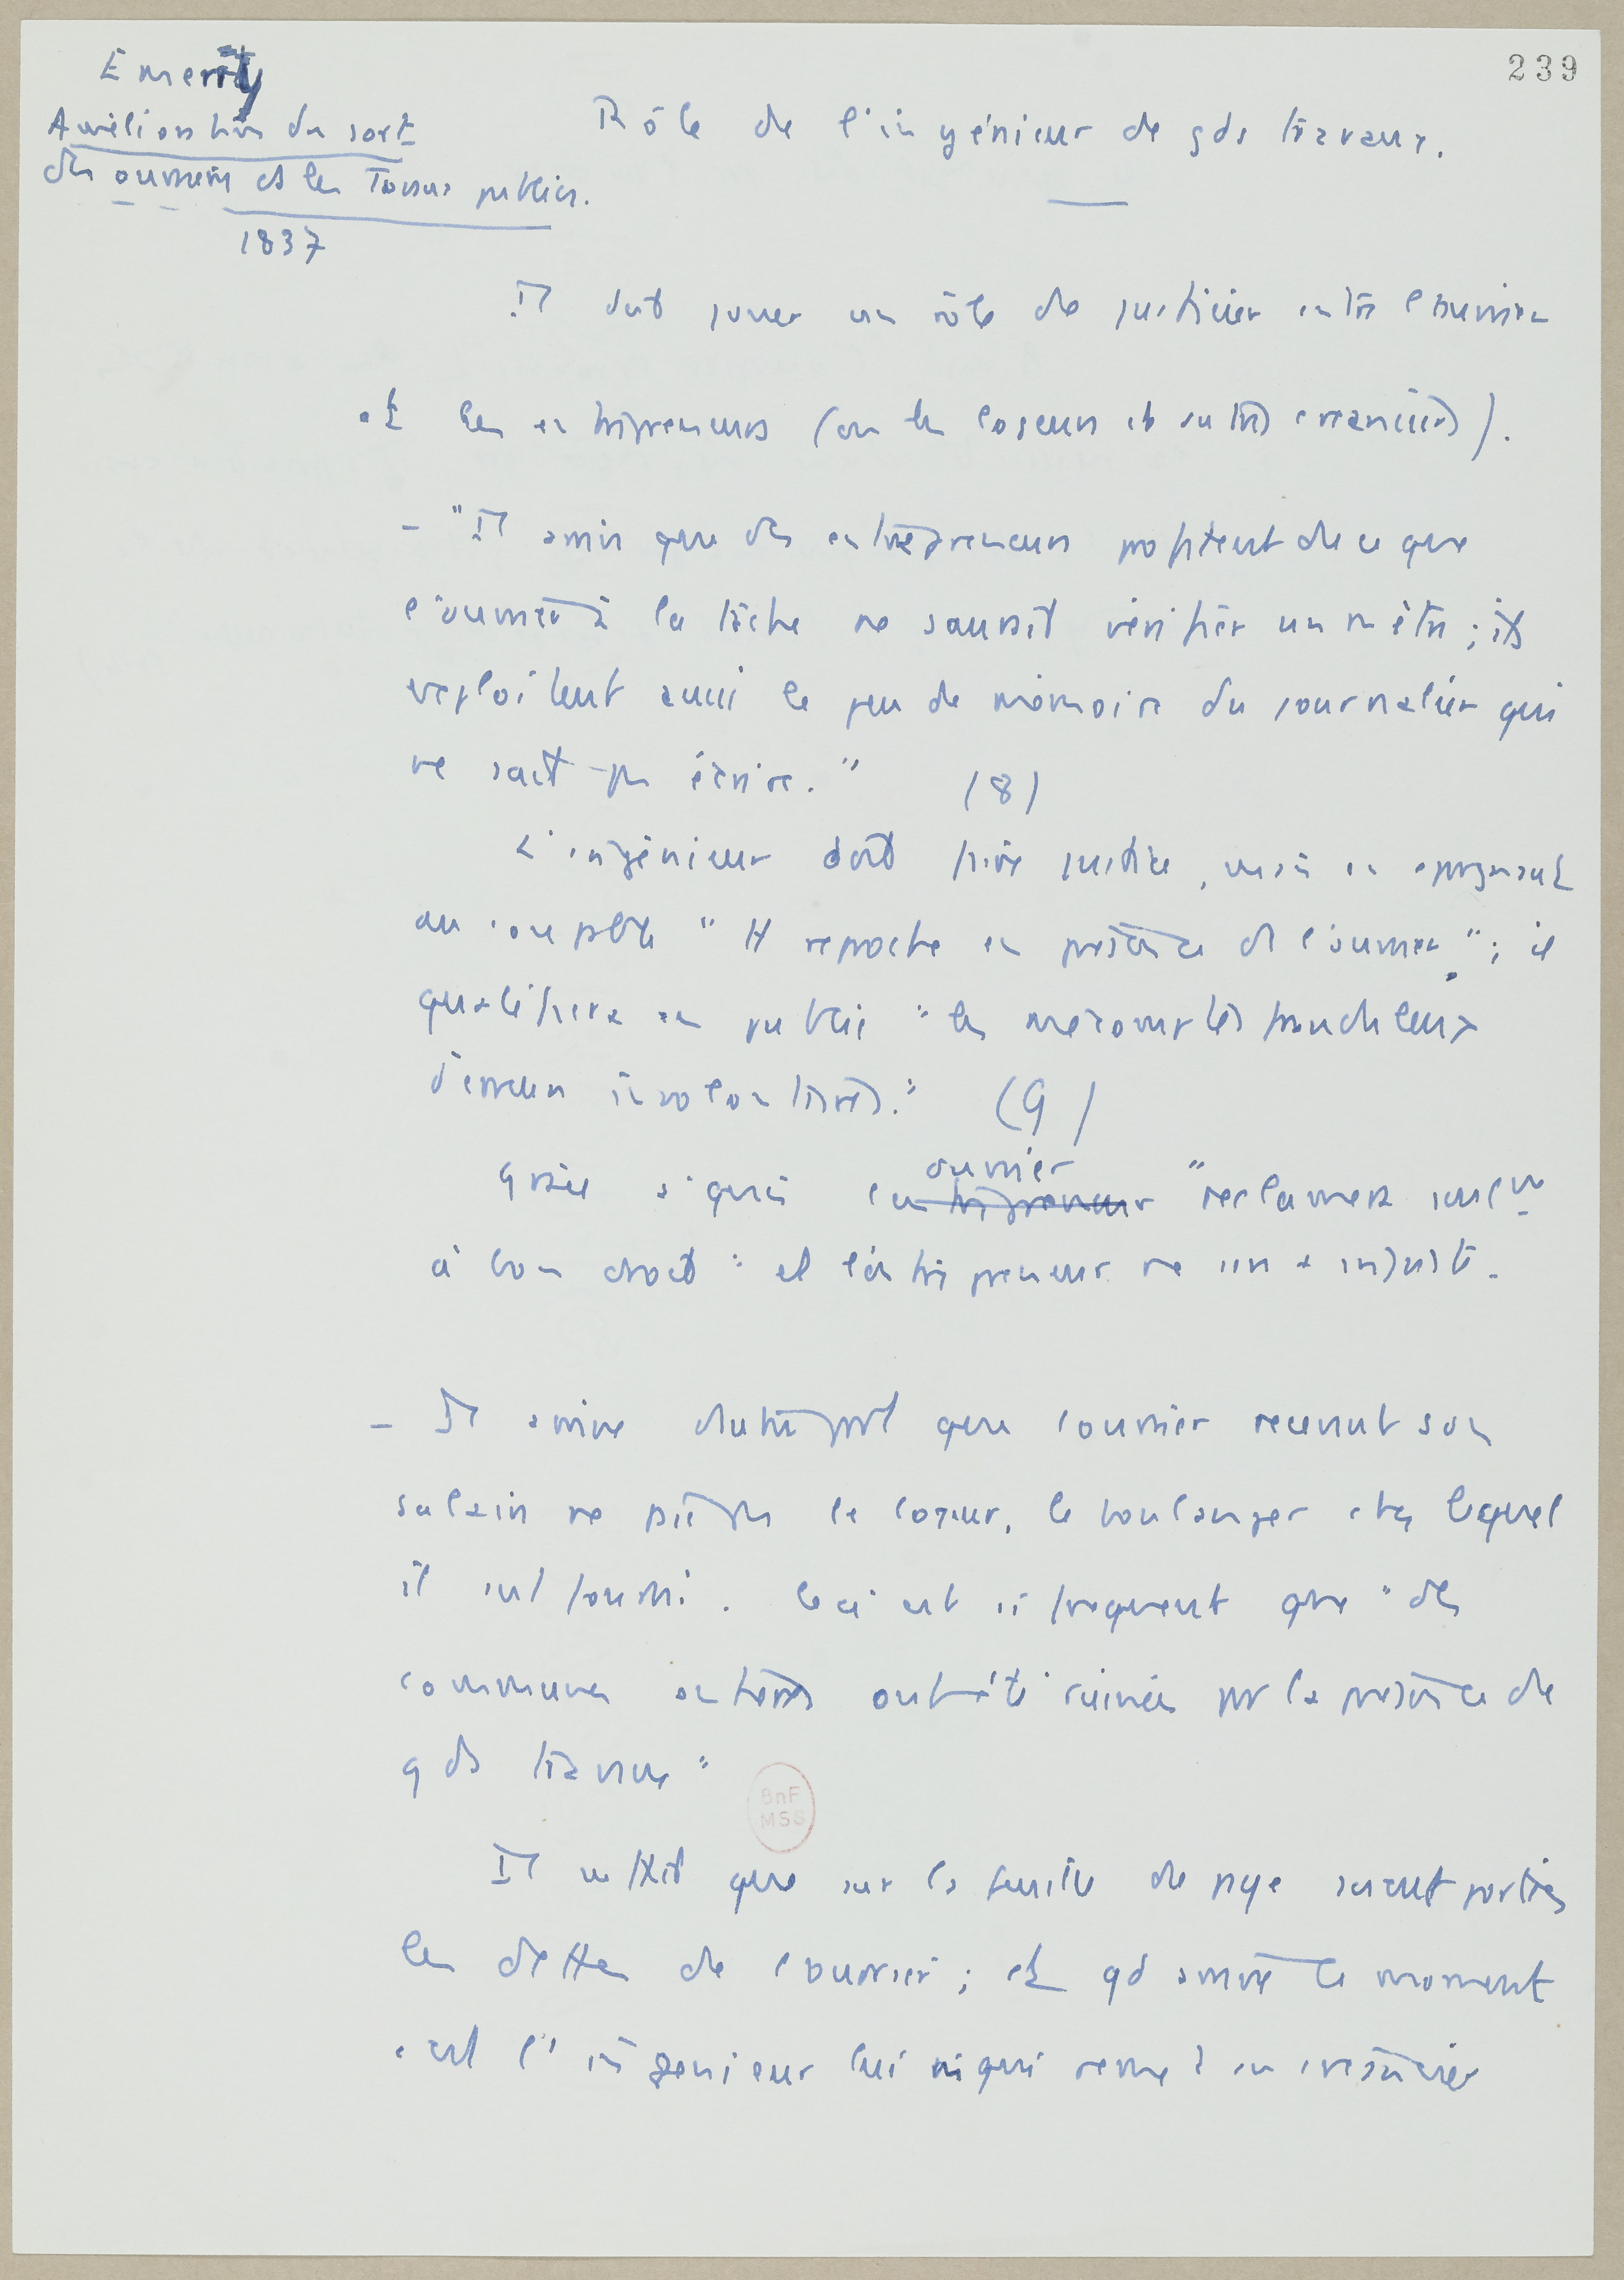 239
Emery
Amélioration du sort
des ouvriers ds les Travaux publics.
1837
Rôle de l'ingénieur de gds travaux.
Il doit jouer un rôle de justicier entre l'ouvrier
et les entrepreneurs (ou les logeurs et autres créanciers).
- "Il arrive que des entrepreneurs profitent de ce que
l'ouvrier à la tâche ne saurait vérifier un mètre ; ils
exploitent aussi le peu de mémoire du journalier qui
ne sait pas écrire." (8)
L'ingénieur doit faire justice, mais en épargnant
au coupable "tt reproche en présence de l'ouvrier" ; il
qualifiera en public "les mécomptes frauduleux
d'erreurs involontaires." (9)
Grâce à quoi l'ouvrier "réclamera seulmt
à bon droit" et l'entrepreneur ne sera injuste.
- Il arrive d'autre part que l'ouvrier recevant son
salaire ne paie pas le logeur, le boulanger chez lequel
il est fourni. Ceci est si fréquent que "des
communes entières ont été ruinées par la présence de
gds travaux"
BnF
MSS
Il suffit que sur la feuille de paye soient portées
les dettes de l'ouvrier ; et qd arrive le moment
c'est l'ingénieur lui qui remet au créancier